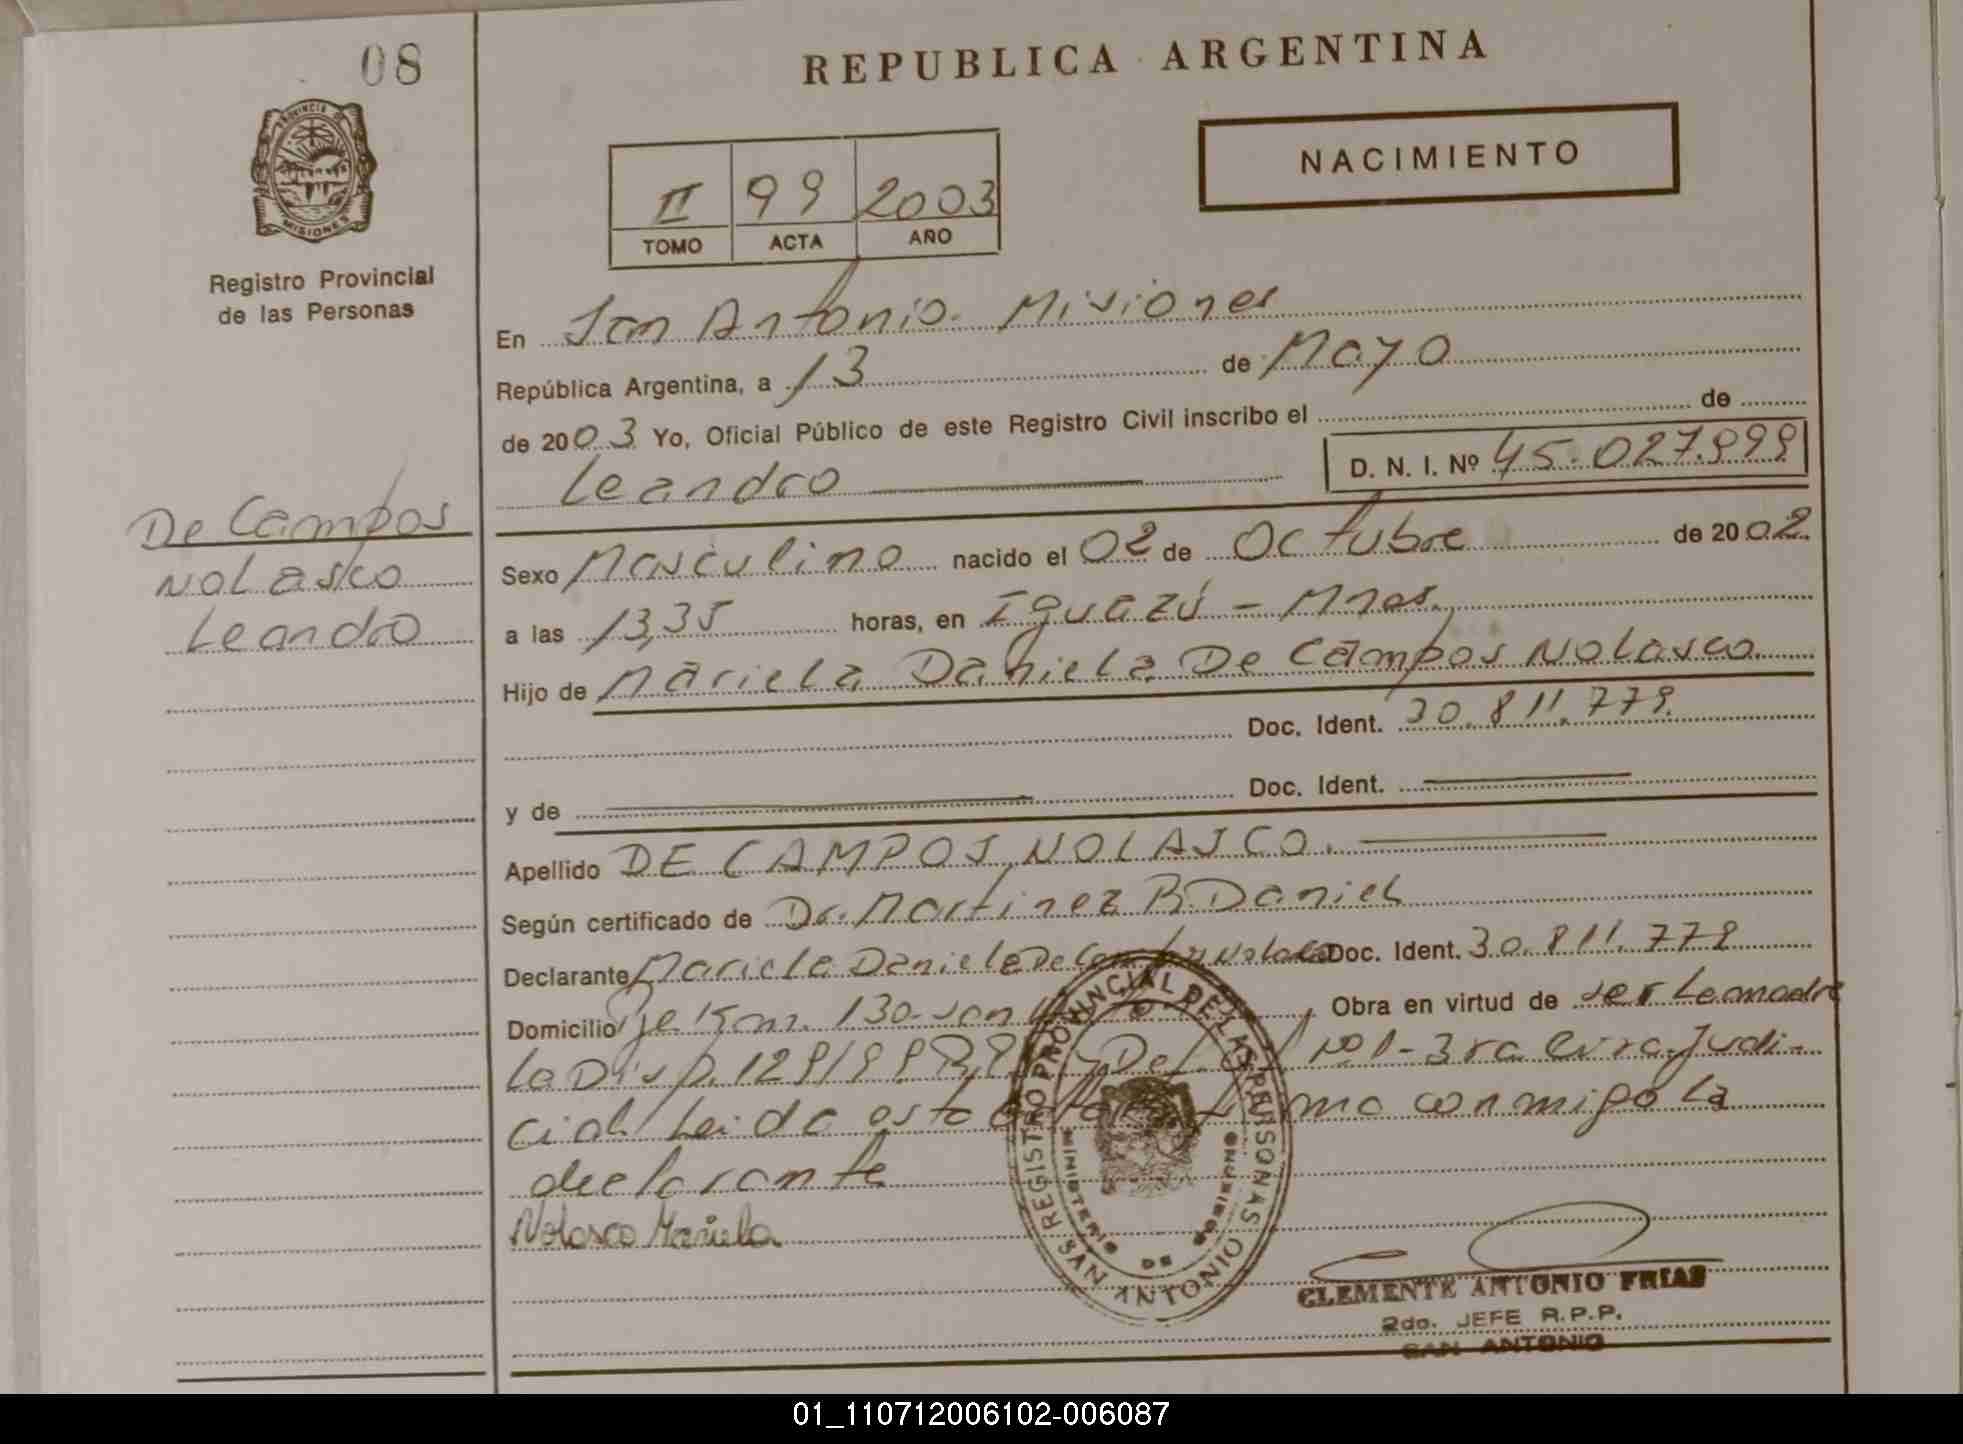 08
REPUBLICA ARGENTINA
PROVINCIA DE
MISIONES
Registro Provincial
de las Personas
NACIMIENTO
II 99 2003
TOMO ACTA AÑO
En San Antonio - Misiones
República Argentina, a 13 de Mayo
de 2003 Yo, Oficial Público de este Registro Civil inscribo el de
Leandro D. N. I. Nº 45.027.999
De Campos
Nolasco
Leandro
Sexo Masculino nacido el 02 de Octubre de 2002.
a las 13,35 horas, en Iguazú - Mnes.
Hijo de Mariela Daniela De Campos Nolasco
Doc. Ident. 30.811.779.
y de Doc. Ident.
Apellido DE CAMPOS NOLASCO.
Según certificado de Dr. Martinez R. Daniel
Declarante Mariela Daniela De Campos Nolasco Doc. Ident. 30.811.779
Domicilio Km. 130 - San Obra en virtud de ser la madre
la Disp. 129/99 Def. Nº 1 - 3ra Circ. Judi-
cial Leida esta acta firma conmigo la
declarante
Nolasco Mariela
REGISTRO PROVINCIAL DE LAS PERSONAS
SAN ANTONIO
MINISTERIO DE GOBIERNO
CLEMENTE ANTONIO FRIAS
2do. JEFE R.P.P.
SAN ANTONIO
01_110712006102-006087